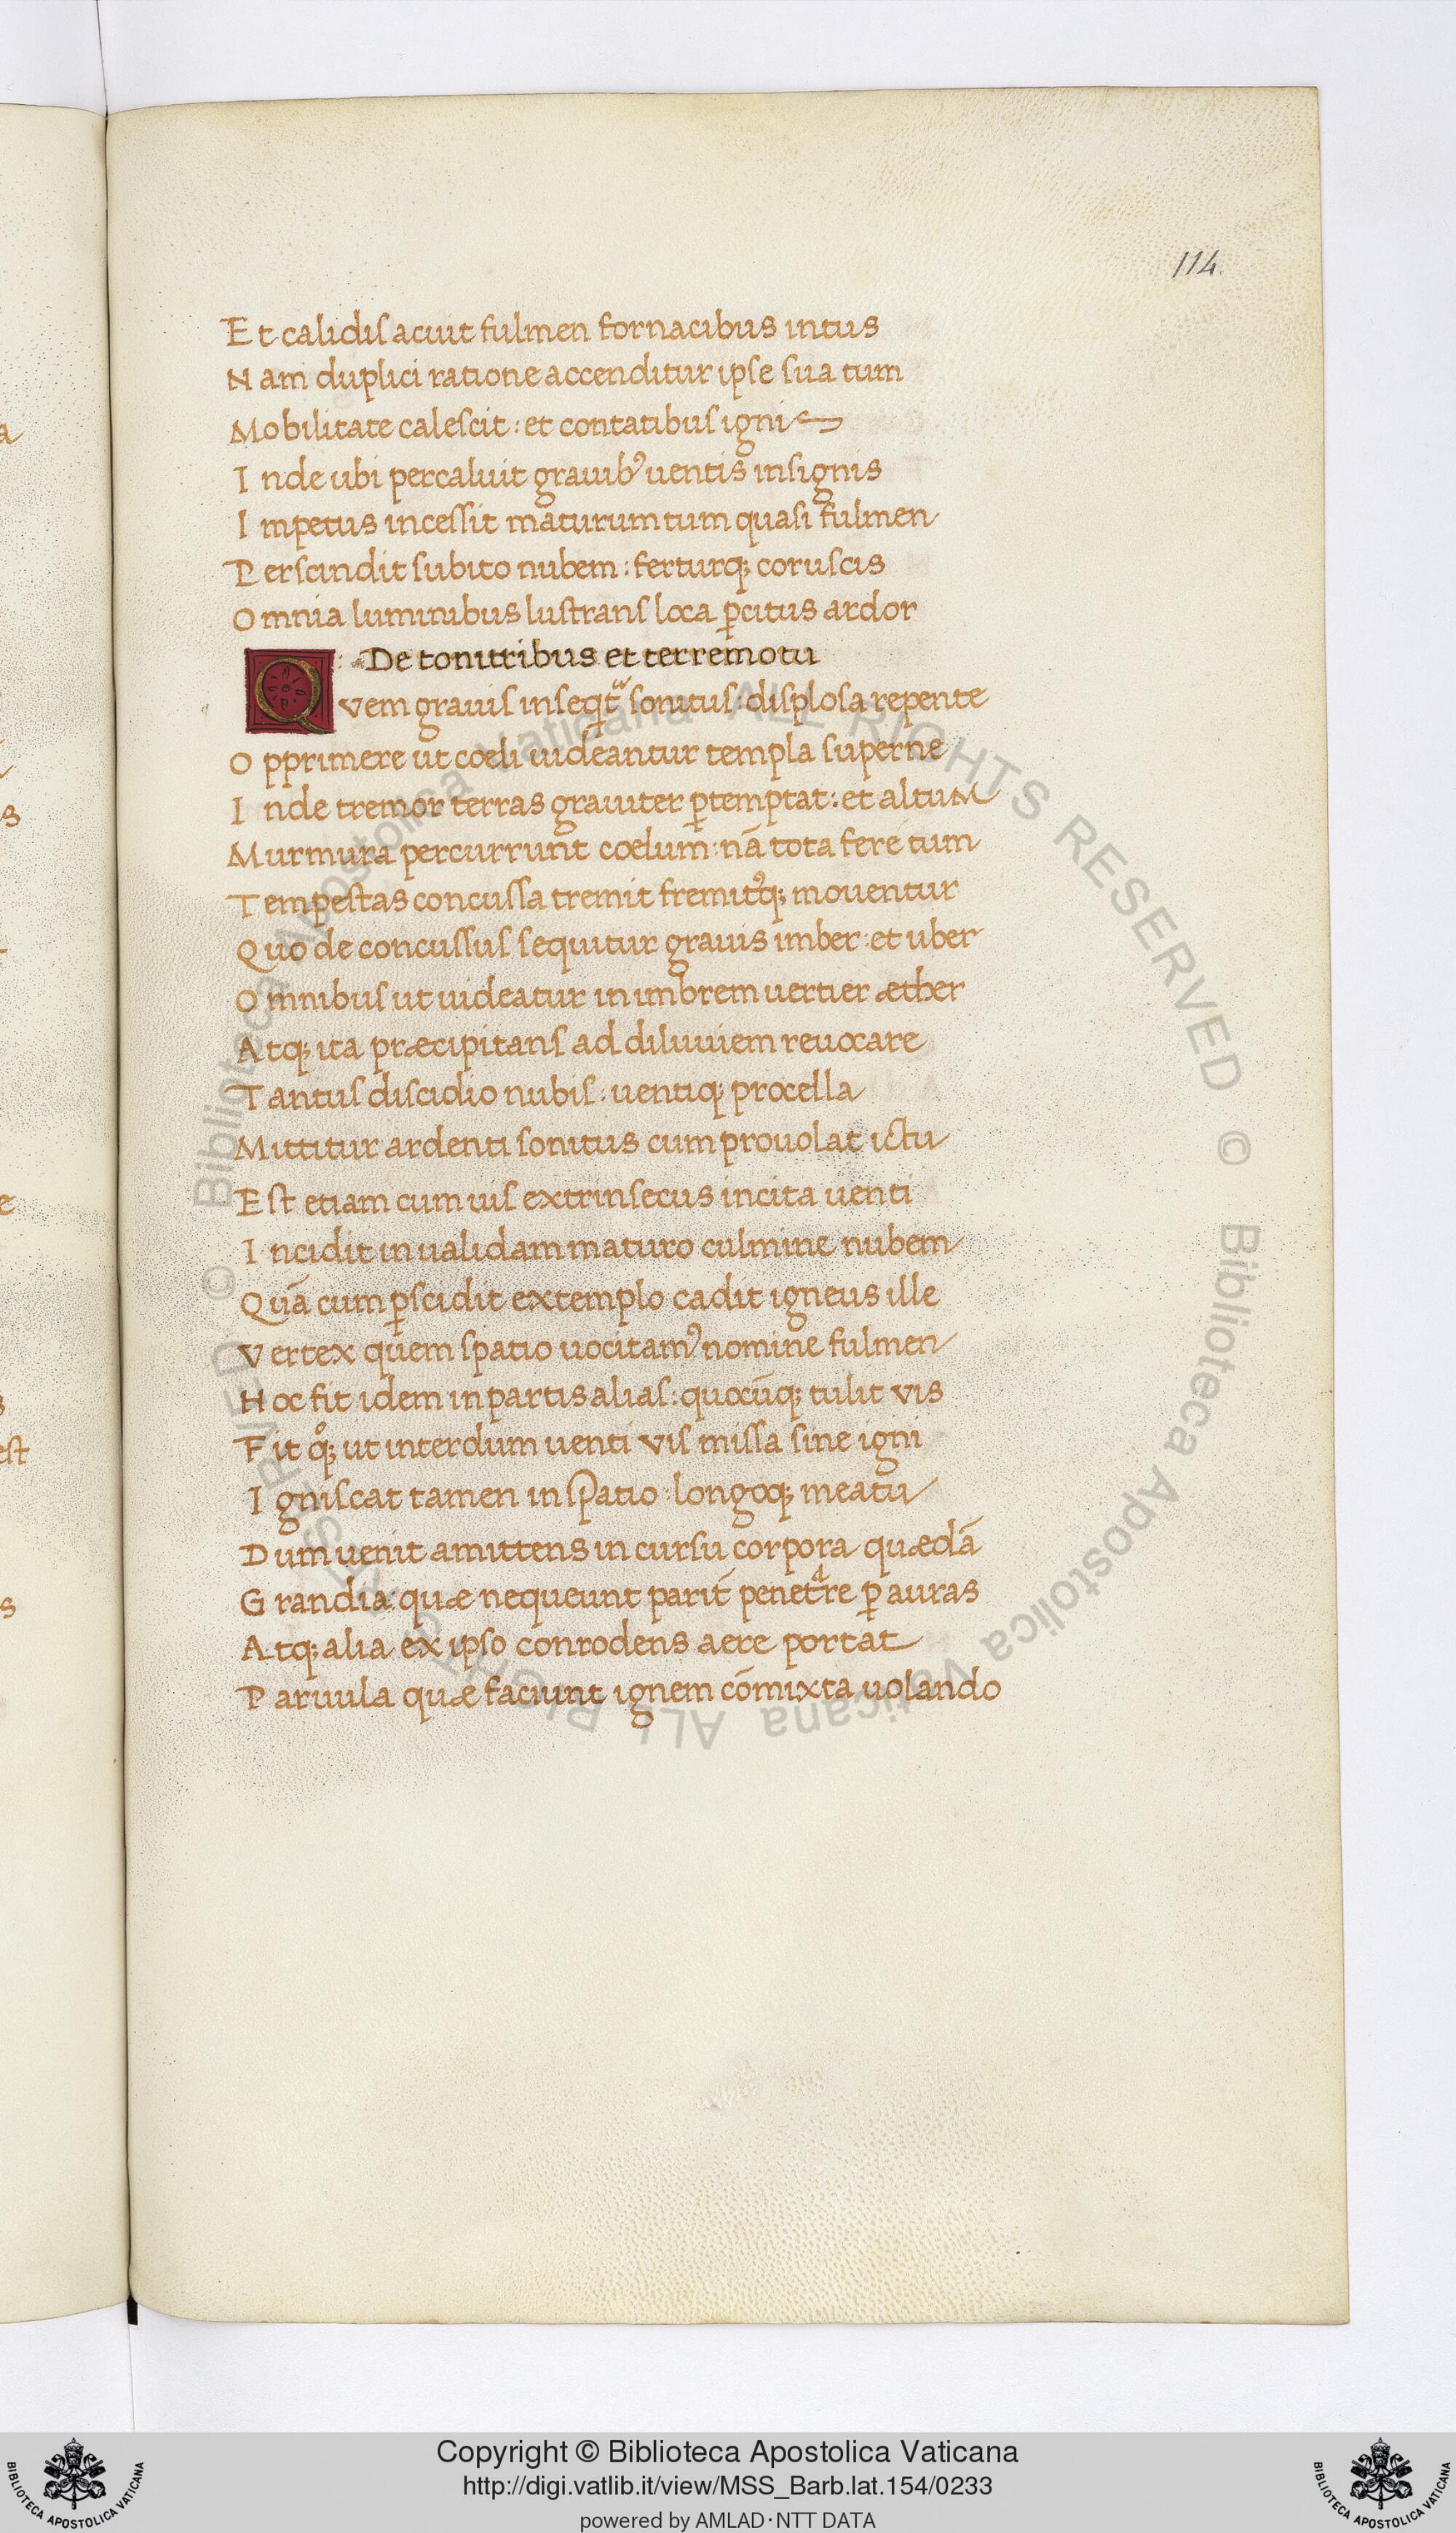 114.
Et calidis acuit fulmen fornacibus intus
Nam duplici ratione accenditur ipse sua tum
Mobilitate calescit: et contatibus igni
Inde ubi percaluit grauibꝰ uentis insignis
Impetus incessit maturum tum quasi fulmen
Perscindit subito nubem: ferturqꝫ coruscis
Omnia luminibus lustrans loca ꝑcitus ardor
De tonitribus et terremotu
Qvem grauis inseqt̃ᵘʳ sonitus: displosa repente
Opprimere ut coeli uideantur templa superne
Inde tremor terras grauiter ꝑtemptat: et altum
Murmura percurrunt coelum: nã tota fere tum
Tempestas concussa tremit fremitꝰqꝫ mouentur
Quo de concussus sequitur grauis imber: et uber
Omnibus ut uideatur in imbrem uertier æther
Atqꝫ ita præcipitans ad diluuiem reuocare
Tantus discidio nubis: uentiqꝫ procella
Mittitur ardenti sonitus cum prouolat ictu
Est etiam cum uis extrinsecus incita uenti
Incidit in ualidam maturo culmine nubem
Quã cum ꝑscidit extemplo cadit igneus ille
Vertex quem spatio uocitamꝰ nomine fulmen
Hoc fit idem in partis alias: quocũqꝫ tulit vis
Fit qͦqꝫ ut interdum uenti vis missa sine igni
Igniscat tamen in spatio longoqꝫ meatu
Dum uenit amittens in cursu corpora quædã
Grandia: quæ nequeunt parit̃ penetᵃre ꝑ auras
Atqꝫ alia ex ipso conrodens aere portat
Paruula quæ faciunt ignem cõmixta uolando
© Biblioteca Apostolica Vaticana ALL RIGHTS RESERVED © Biblioteca Apostolica Vaticana ALL RIGHTS RESERVED
Copyright © Biblioteca Apostolica Vaticana
http://digi.vatlib.it/view/MSS_Barb.lat.154/0233
powered by AMLAD·NTT DATA
BIBLIOTECA APOSTOLICA VATICANA
BIBLIOTECA APOSTOLICA VATICANA